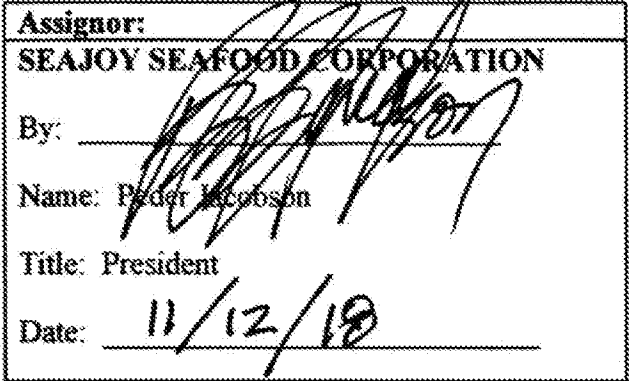 Assignor:
SEAJOY SEAFOOD CORPORATION
By:
Name: Peder Jacobson
Title: President
Date: 11/12/18